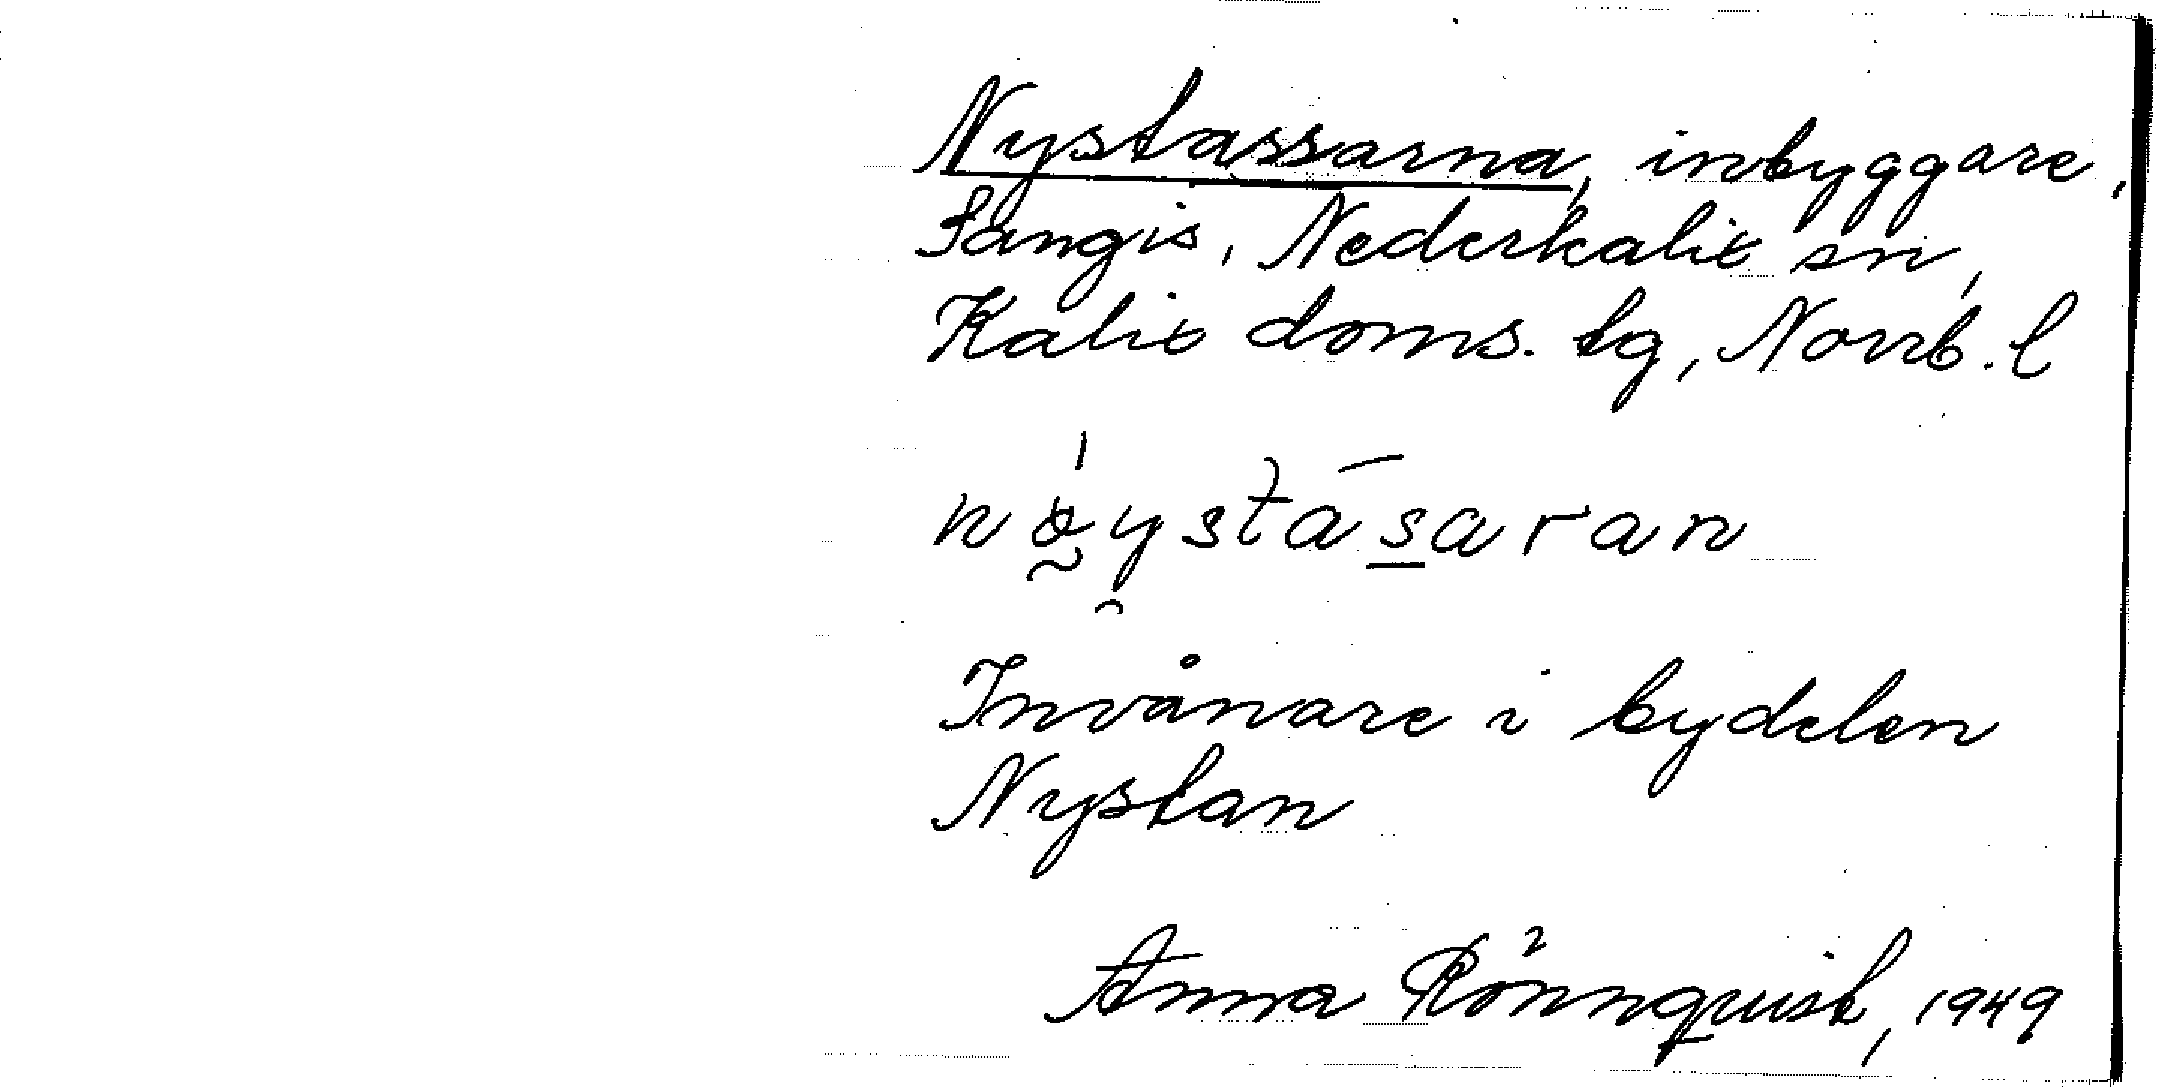 Nystassarna, inbyggare,
Sangis, Nederkalix sn,
Kalix doms. tg, Norrb. l
nøystásaran
Invånare i bydelen
Nystan
Anna Rönnquist, 1949